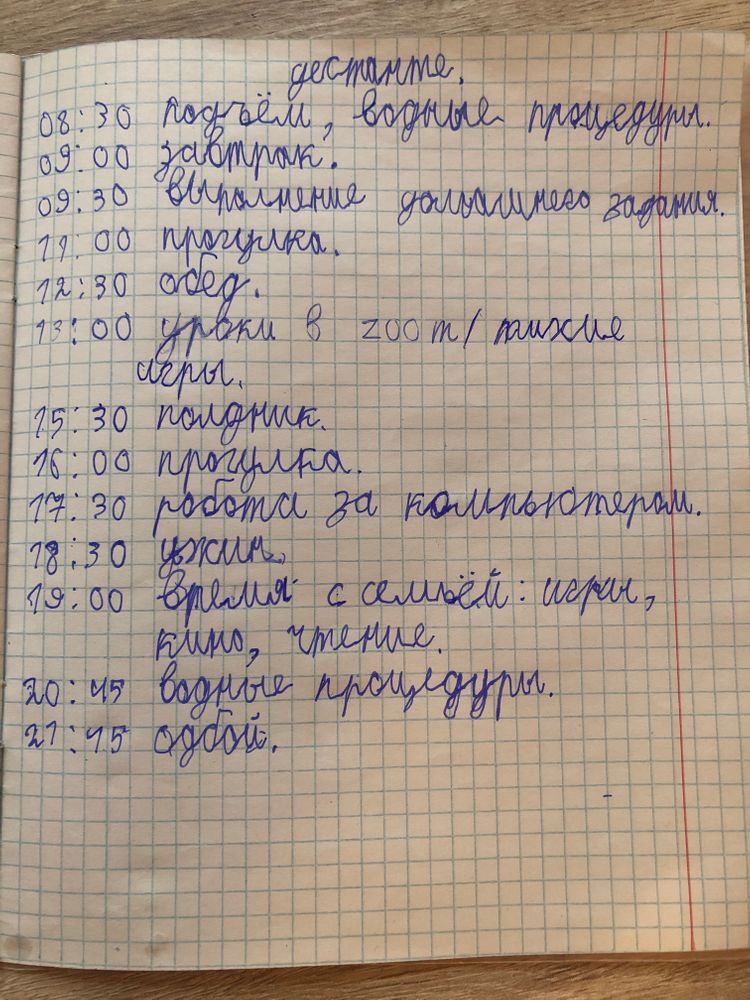 дестанте.
08:30 подъём, водные процедуры.
09:00 завтрак.
09:30 выполнение домашнего задания.
11:00 прогулка.
12:30 обед.
13:00 уроки в zoom/тихие
игры.
15:30 полдник.
16:00 прогулка.
17:30 робота за компьютером.
18:30 ужин.
19:00 время с семьёй: игры,
кино, чтение.
20:45 водные процедуры.
21:45 одбой.